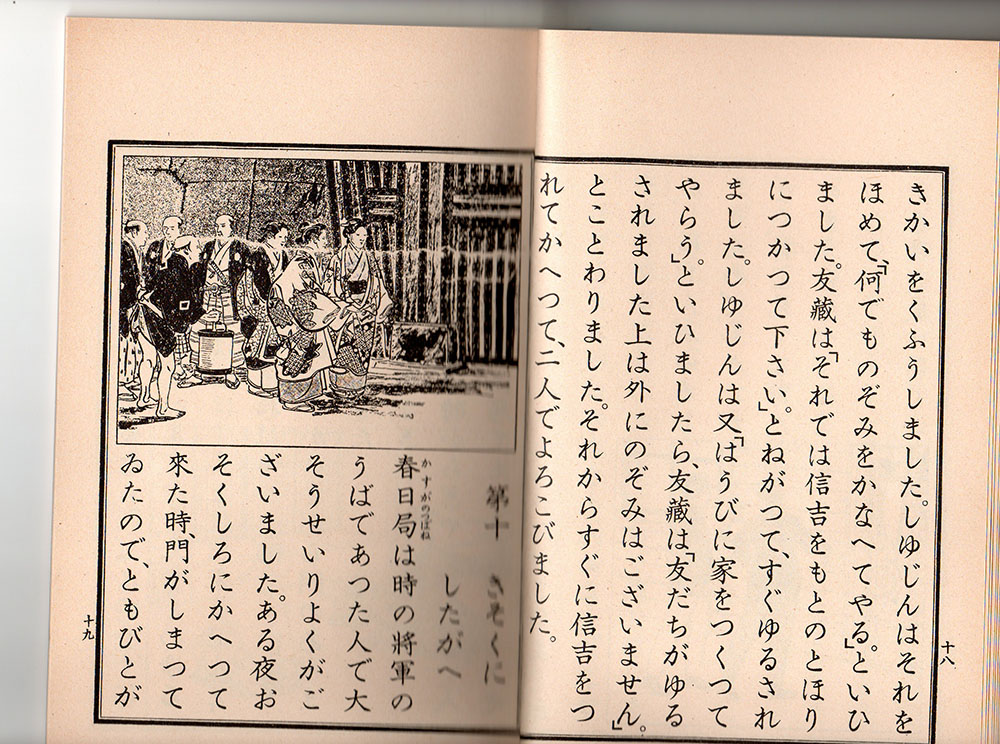 きかいをくふうしました。しゆじんはそれを
ほめて、「何でものぞみをかなへてやる。」といひ
ました。友藏は「それでは信吉をもとのとほり
につかつて下さい。」とねがつて、すぐゆるされ
ました。しゆじんは又「はうびに家をつくつて
やらう。」といひましたら、友藏は、「友だちがゆる
されました上は外にのぞみはございません。」
とことわりました。それからすぐに信吉をつ
れてかへつて、二人でよろこびました。
十八
第十 きそくに
したがへ
春日局は時の將軍の
かすがのつぼね
うばであつた人で大
そうせいりよくがご
ざいました。ある夜お
そくしろにかへつて
來た時、門がしまつて
ゐたので、ともびとが
十九